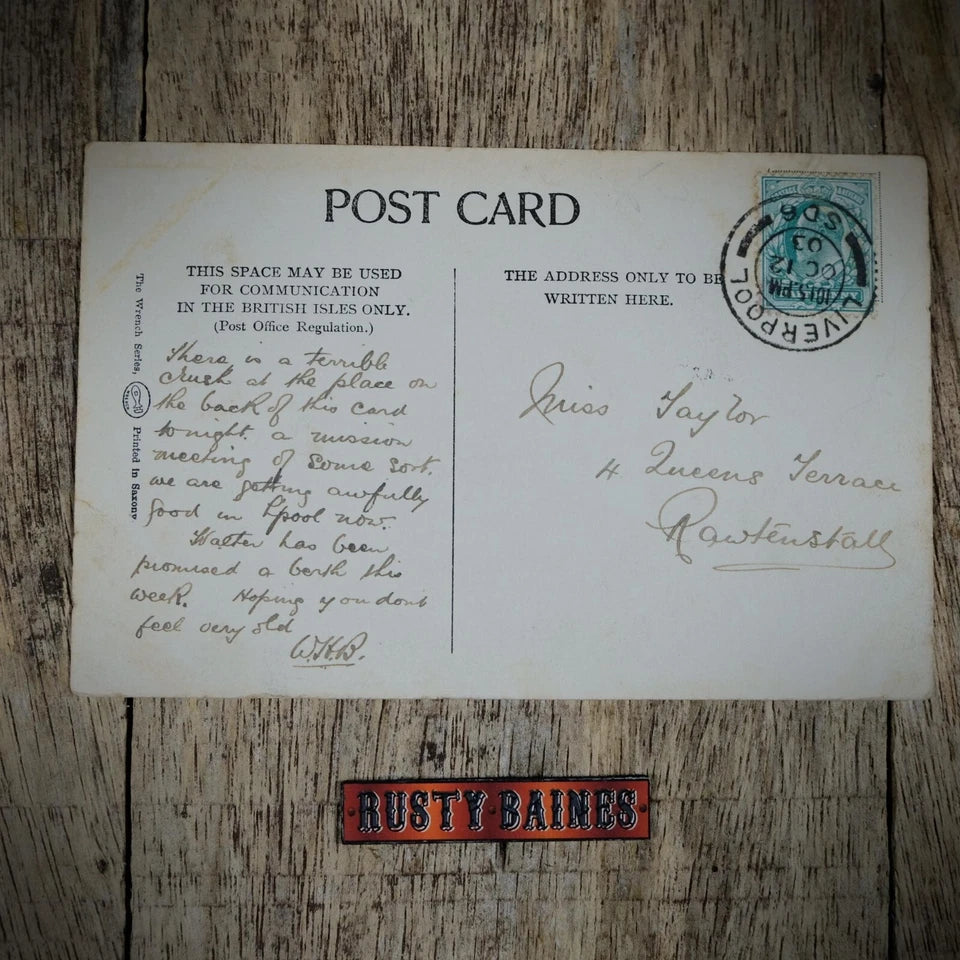 POST CARD
THIS SPACE MAY BE USED
FOR COMMUNICATION
IN THE BRITISH ISLES ONLY.
(Post Office Regulation.)
The Wrench Series,
Printed in Saxony
There is a terrible
Crush at the place on
the back of this card
tonight. a mission
meeting of some sort.
we are getting awfully
good in Lpool now.
Walter has been
promised a berth this
week. Hoping you dont
feel very old
W.H.B.
THE ADDRESS ONLY TO BE
WRITTEN HERE.
LIVERPOOL
10.15 PM
OC 12
03
Miss Taylor
4 Queens Terrace
Rawtenstall
RUSTY BAINES